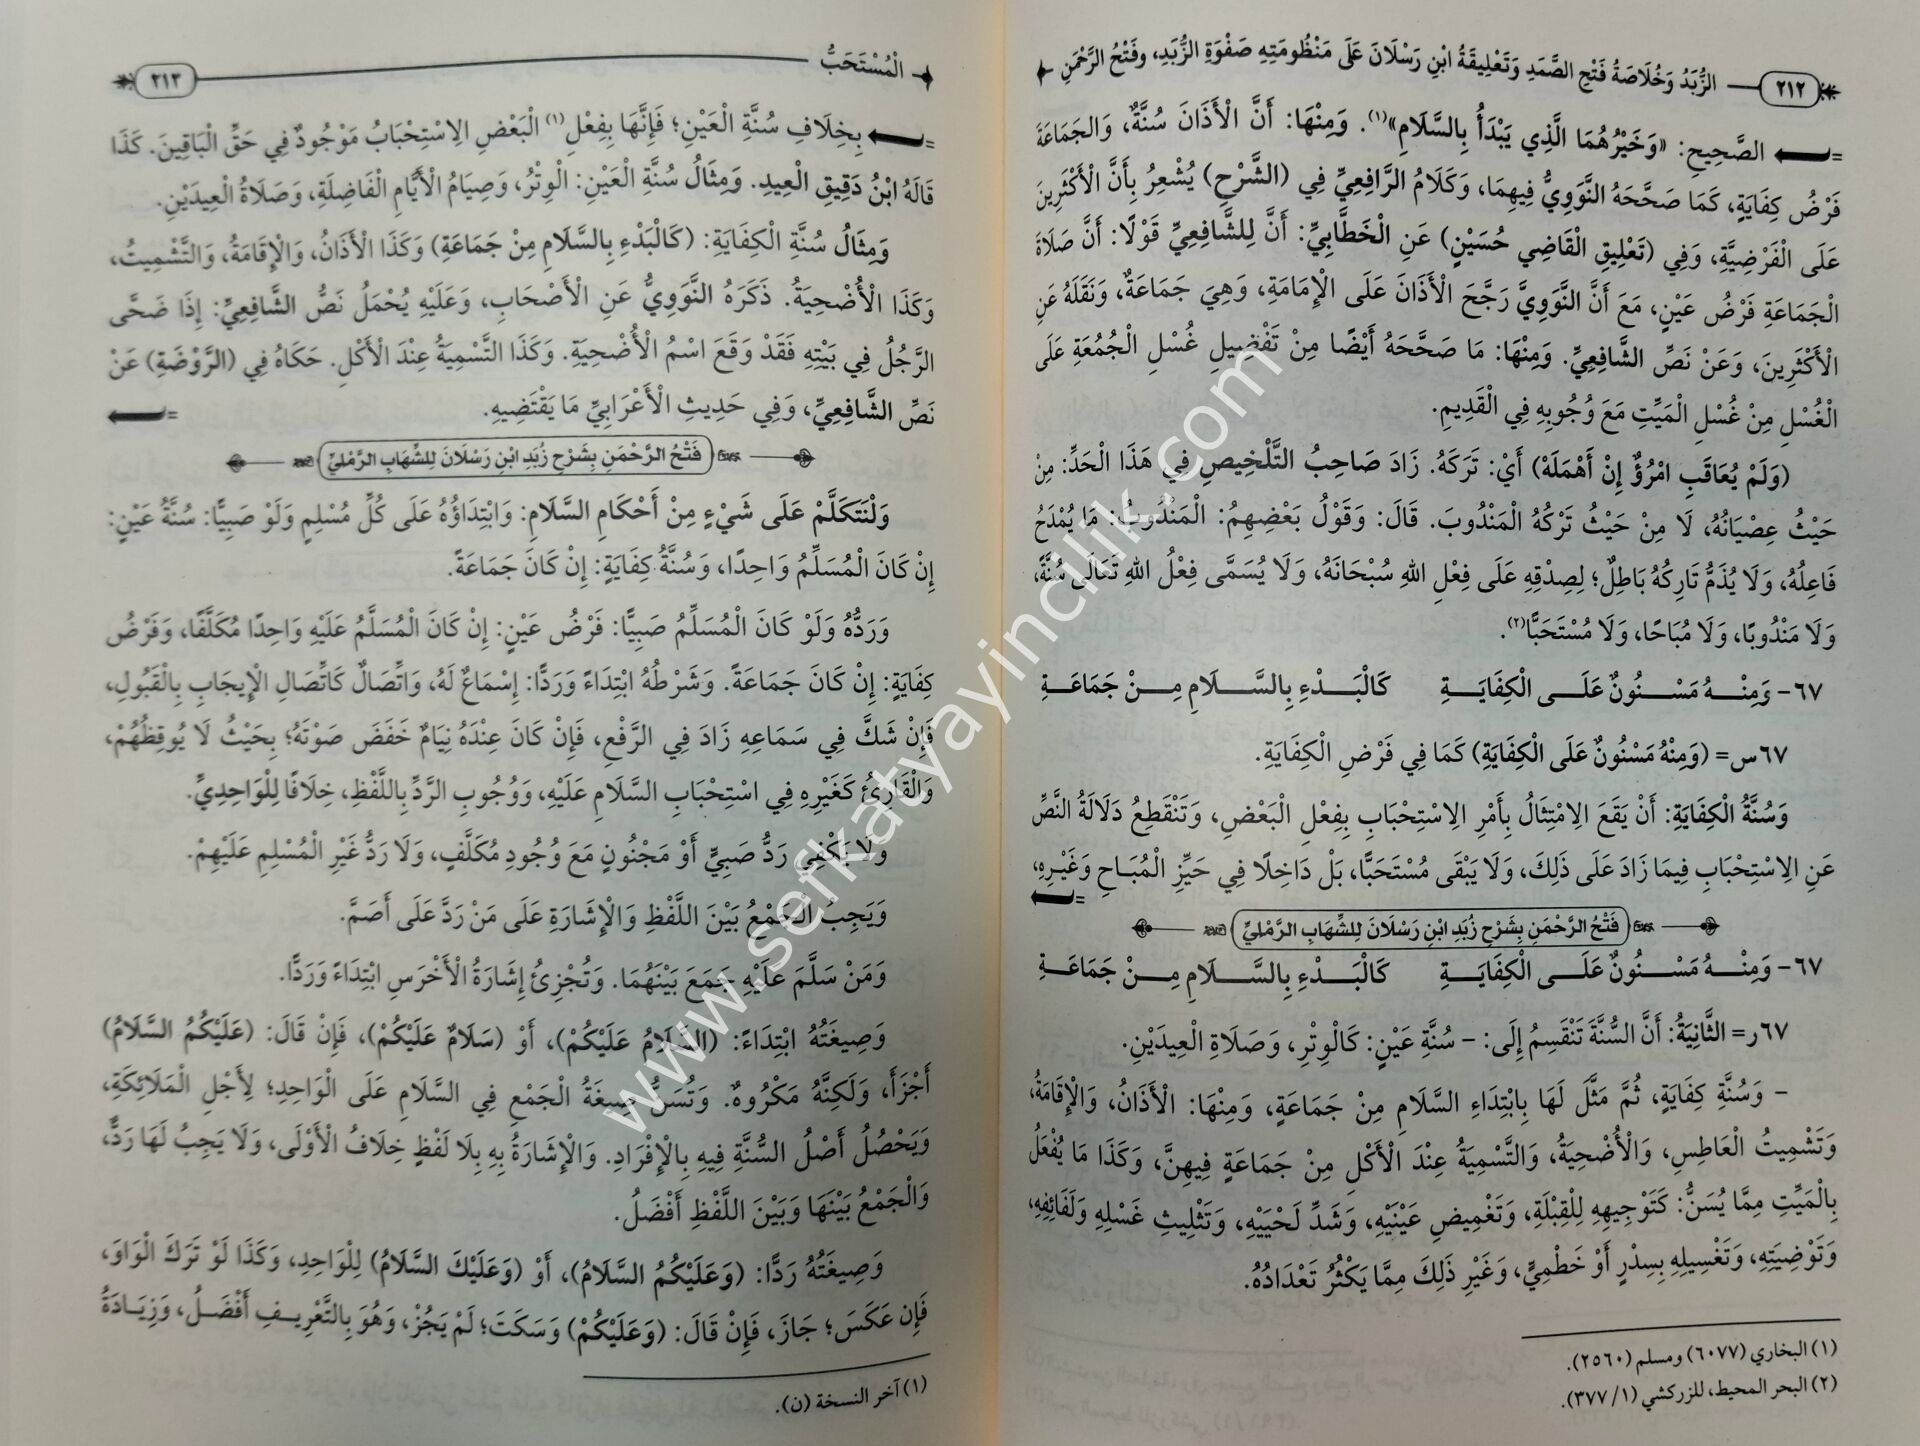 ٢١٢ الزُّبَدُ وَخُلَاصَةُ فَتْحِ الصَّمَدِ وَتَعْلِيقَةُ ابْنِ رَسْلَانَ عَلَى مَنْظُومَتِهِ صَفْوَةِ الزُّبَدِ، وفَتْحُ الرَّحْمَنِ
= الصَّحِيحِ: «وَخَيْرُهُمَا الَّذِي يَبْدَأُ بِالسَّلَامِ»(١). وَمِنْهَا: أَنَّ الْأَذَانَ سُنَّةٌ، وَالجَمَاعَةَ
فَرْضُ كِفَايَةٍ، كَمَا صَحَّحَهُ النَّوَوِيُّ فِيهِمَا، وَكَلَامُ الرَّافِعِيِّ فِي (الشَّرْحِ) يُشْعِرُ بِأَنَّ الْأَكْثَرِينَ
عَلَى الْفَرْضِيَّةِ، وَفِي (تَعْلِيقِ الْقَاضِي حُسَيْنٍ) عَنِ الْخَطَّابِيِّ: أَنَّ لِلشَّافِعِيِّ قَوْلًا: أَنَّ صَلَاةَ
الْجَمَاعَةِ فَرْضُ عَيْنٍ، مَعَ أَنَّ النَّوَوِيَّ رَجَّحَ الْأَذَانَ عَلَى الْإِمَامَةِ، وَهِيَ جَمَاعَةٌ، وَنَقَلَهُ عَنِ
الْأَكْثَرِينَ، وَعَنْ نَصِّ الشَّافِعِيِّ. وَمِنْهَا: مَا صَحَّحَهُ أَيْضًا مِنْ تَفْضِيلِ غُسْلِ الْجُمُعَةِ عَلَى
الْغُسْلِ مِنْ غُسْلِ الْمَيِّتِ مَعَ وُجُوبِهِ فِي الْقَدِيمِ.
(وَلَمْ يُعَاقَبِ امْرُؤٌ إِنْ أَهْمَلَهْ) أَيْ: تَرَكَهُ. زَادَ صَاحِبُ التَّلْخِيصِ فِي هَذَا الْحَدِّ: مِنْ
حَيْثُ عِصْيَانُهُ، لَا مِنْ حَيْثُ تَرْكُهُ الْمَنْدُوبَ. قَالَ: وَقَوْلُ بَعْضِهِمُ: الْمَنْدُوبُ: مَا يُمْدَحُ
فَاعِلُهُ، وَلَا يُذَمُّ تَارِكُهُ بَاطِلٌ؛ لِصِدْقِهِ عَلَى فِعْلِ اللهِ سُبْحَانَهُ، وَلَا يُسَمَّى فِعْلُ اللهِ تَعَالَى سُنَّةً،
وَلَا مَنْدُوبًا، وَلَا مُبَاحًا، وَلَا مُسْتَحَبًّا(٢).
٦٧- وَمِنْهُ مَسْنُونٌ عَلَى الْكِفَايَةِ كَالْبَدْءِ بِالسَّلَامِ مِنْ جَمَاعَةِ
٦٧س= (وَمِنْهُ مَسْنُونٌ عَلَى الْكِفَايَةِ) كَمَا فِي فَرْضِ الْكِفَايَةِ.
وَسُنَّةُ الْكِفَايَةِ: أَنْ يَقَعَ الِامْتِثَالُ بِأَمْرِ الِاسْتِحْبَابِ بِفِعْلِ الْبَعْضِ، وَتَنْقَطِعُ دَلَالَةُ النَّصِّ
عَنِ الِاسْتِحْبَابِ فِيمَا زَادَ عَلَى ذَلِكَ، وَلَا يَبْقَى مُسْتَحَبًّا، بَلْ دَاخِلًا فِي حَيِّزِ الْمُبَاحِ وَغَيْرِهِ، =
فَتْحُ الرَّحْمَنِ بِشَرْحِ زُبَدِ ابْنِ رَسْلَانَ لِلشِّهَابِ الرَّمْلِيِّ
٦٧- وَمِنْهُ مَسْنُونٌ عَلَى الْكِفَايَةِ كَالْبَدْءِ بِالسَّلَامِ مِنْ جَمَاعَةِ
٦٧ر= الثَّانِيَةُ: أَنَّ السُّنَّةَ تَنْقَسِمُ إِلَى: - سُنَّةِ عَيْنٍ: كَالْوِتْرِ، وَصَلَاةِ الْعِيدَيْنِ.
- وَسُنَّةِ كِفَايَةٍ، ثُمَّ مَثَّلَ لَهَا بِابْتِدَاءِ السَّلَامِ مِنْ جَمَاعَةٍ، وَمِنْهَا: الْأَذَانُ، وَالْإِقَامَةُ،
وَتَشْمِيتُ الْعَاطِسِ، وَالْأُضْحِيَةُ، وَالتَّسْمِيَةُ عِنْدَ الْأَكْلِ مِنْ جَمَاعَةٍ فِيهِنَّ، وَكَذَا مَا يُفْعَلُ
بِالْمَيِّتِ مِمَّا يُسَنُّ: كَتَوْجِيهِهِ لِلْقِبْلَةِ، وَتَغْمِيضِ عَيْنَيْهِ، وَشَدِّ لَحْيَيْهِ، وَتَثْلِيثِ غَسْلِهِ وَلَفَائِفِهِ،
وَتَوْضِيَتِهِ، وَتَغْسِيلِهِ بِسِدْرٍ أَوْ خَطْمِيٍّ، وَغَيْرِ ذَلِكَ مِمَّا يَكْثُرُ تَعْدَادُهُ.
(١) البخاري (٦٠٧٧) ومسلم (٢٥٦٠).
(٢) البحر المحيط، للزركشي (١/ ٣٧٧).
الْمُسْتَحَبُّ ٢١٣
= بِخِلَافِ سُنَّةِ الْعَيْنِ؛ فَإِنَّهَا بِفِعْلِ(١) الْبَعْضِ الِاسْتِحْبَابُ مَوْجُودٌ فِي حَقِّ الْبَاقِينَ. كَذَا
قَالَهُ ابْنُ دَقِيقِ الْعِيدِ. وَمِثَالُ سُنَّةِ الْعَيْنِ: الْوِتْرُ، وَصِيَامُ الْأَيَّامِ الْفَاضِلَةِ، وَصَلَاةُ الْعِيدَيْنِ.
وَمِثَالُ سُنَّةِ الْكِفَايَةِ: (كَالْبَدْءِ بِالسَّلَامِ مِنْ جَمَاعَةِ) وَكَذَا الْأَذَانُ، وَالْإِقَامَةُ، وَالتَّشْمِيتُ،
وَكَذَا الْأُضْحِيَةُ. ذَكَرَهُ النَّوَوِيُّ عَنِ الْأَصْحَابِ، وَعَلَيْهِ يُحْمَلُ نَصُّ الشَّافِعِيِّ: إِذَا ضَحَّى
الرَّجُلُ فِي بَيْتِهِ فَقَدْ وَقَعَ اسْمُ الْأُضْحِيَةِ. وَكَذَا التَّسْمِيَةُ عِنْدَ الْأَكْلِ. حَكَاهُ فِي (الرَّوْضَةِ) عَنْ
نَصِّ الشَّافِعِيِّ، وَفِي حَدِيثِ الْأَعْرَابِيِّ مَا يَقْتَضِيهِ. =
فَتْحُ الرَّحْمَنِ بِشَرْحِ زُبَدِ ابْنِ رَسْلَانَ لِلشِّهَابِ الرَّمْلِيِّ
وَلْنَتَكَلَّمْ عَلَى شَيْءٍ مِنْ أَحْكَامِ السَّلَامِ: وَابْتِدَاؤُهُ عَلَى كُلِّ مُسْلِمٍ وَلَو صَبِيًّا: سُنَّةُ عَيْنٍ:
إِنْ كَانَ الْمُسَلِّمُ وَاحِدًا، وَسُنَّةُ كِفَايَةٍ: إِنْ كَانَ جَمَاعَةً.
وَرَدُّهُ وَلَوْ كَانَ الْمُسَلِّمُ صَبِيًّا: فَرْضُ عَيْنٍ: إِنْ كَانَ الْمُسَلَّمُ عَلَيْهِ وَاحِدًا مُكَلَّفًا، وَفَرْضُ
كِفَايَةٍ: إِنْ كَانَ جَمَاعَةً. وَشَرْطُهُ ابْتِدَاءً وَرَدًّا: إِسْمَاعٌ لَهُ، وَاتِّصَالٌ كَاتِّصَالِ الْإِيجَابِ بِالْقَبُولِ،
فَإِنْ شَكَّ فِي سَمَاعِهِ زَادَ فِي الرَّفْعِ، فَإِنْ كَانَ عِنْدَهُ نِيَامٌ خَفَضَ صَوْتَهُ؛ بِحَيْثُ لَا يُوقِظُهُمْ،
وَالْقَارِئُ كَغَيْرِهِ فِي اسْتِحْبَابِ السَّلَامِ عَلَيْهِ، وَوُجُوبِ الرَّدِّ بِاللَّفْظِ، خِلَافًا لِلْوَاحِدِيِّ.
وَلَا يَكْفِي رَدُّ صَبِيٍّ أَوْ مَجْنُونٍ مَعَ وُجُودِ مُكَلَّفٍ، وَلَا رَدُّ غَيْرِ الْمُسْلِمِ عَلَيْهِمْ.
وَيَجِبُ الْجَمْعُ بَيْنَ اللَّفْظِ وَالْإِشَارَةِ عَلَى مَنْ رَدَّ عَلَى أَصَمَّ.
وَمَنْ سَلَّمَ عَلَيْهِ جَمَعَ بَيْنَهُمَا. وَتُجْزِئُ إِشَارَةُ الْأَخْرَسِ ابْتِدَاءً وَرَدًّا.
وَصِيغَتُهُ ابْتِدَاءً: (السَّلَامُ عَلَيْكُمْ)، أَوْ (سَلَامٌ عَلَيْكُمْ)، فَإِنْ قَالَ: (عَلَيْكُمُ السَّلَامُ)
أَجْزَأَ، وَلَكِنَّهُ مَكْرُوهٌ. وَتُسَنُّ صِيغَةُ الْجَمْعِ فِي السَّلَامِ عَلَى الْوَاحِدِ؛ لِأَجْلِ الْمَلَائِكَةِ،
وَيَحْصُلُ أَصْلُ السُّنَّةِ فِيهِ بِالْإِفْرَادِ. وَالْإِشَارَةُ بِهِ بِلَا لَفْظٍ خِلَافُ الْأَوْلَى، وَلَا يَجِبُ لَهَا رَدٌّ،
وَالْجَمْعُ بَيْنَهَا وَبَيْنَ اللَّفْظِ أَفْضَلُ.
وَصِيغَتُهُ رَدًّا: (وَعَلَيْكُمُ السَّلَامُ)، أَوْ (وَعَلَيْكَ السَّلَامُ) لِلْوَاحِدِ، وَكَذَا لَوْ تَرَكَ الْوَاوَ،
فَإِن عَكَسَ؛ جَازَ، فَإِنْ قَالَ: (وَعَلَيْكُمْ) وَسَكَتَ؛ لَمْ يَجُزْ، وَهُوَ بِالتَّعْرِيفِ أَفْضَلُ، وَزِيَادَةُ
(١) آخر النسخة (ن).
www.sefkatyayincilik.com